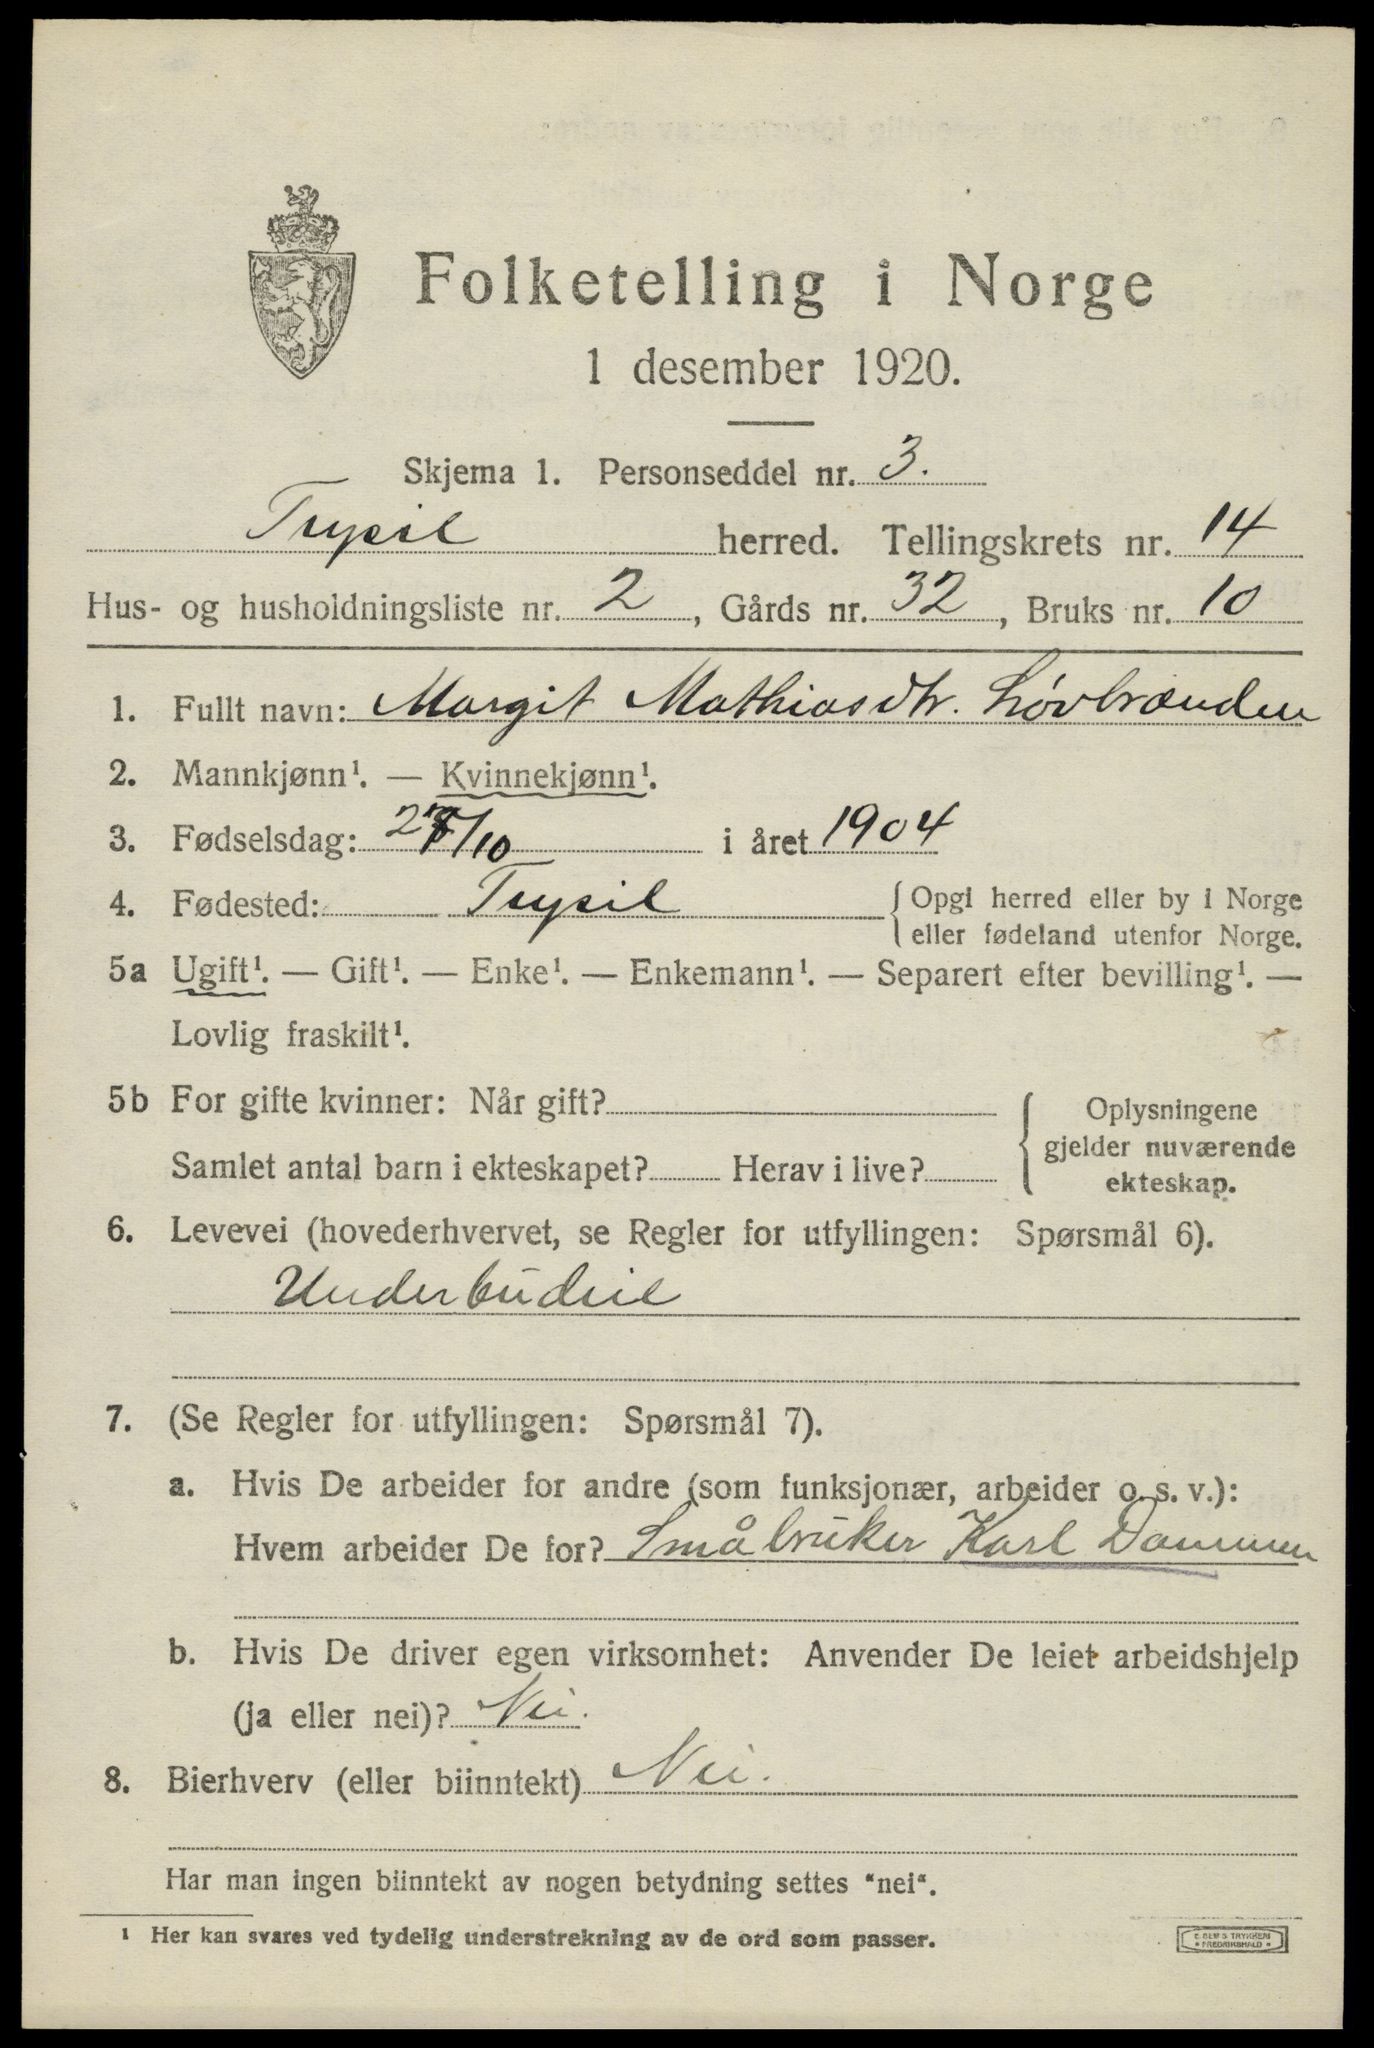 Folketelling i Norge
1 desember 1920.
Skjema 1. Personseddel nr. 3.
Trysil herred. Tellingskrets nr. 14
Hus- og husholdningsliste nr. 2, Gårds nr. 32, Bruks nr. 10
1. Fullt navn: Margit Mathiasdtr. Løvbrænden
2. Mannkjønn¹. — Kvinnekjønn¹.
3. Fødselsdag: /10 i året 1904
4. Fødested: Trysil { Opgi herred eller by i Norge
eller fødeland utenfor Norge.
5a Ugift¹. — Gift¹. — Enke¹. — Enkemann¹. — Separert efter bevilling¹. —
Lovlig fraskilt¹.
5b For gifte kvinner: Når gift? { Oplysningene
gjelder nuværende
Samlet antal barn i ekteskapet? Herav i live?
ekteskap.
6. Levevei (hovederhvervet, se Regler for utfyllingen: Spørsmål 6).
Underbudeie
7. (Se Regler for utfyllingen: Spørsmål 7).
a. Hvis De arbeider for andre (som funksjonær, arbeider o. s. v.):
Hvem arbeider De for? Småbruker Karl Dammen
b. Hvis De driver egen virksomhet: Anvender De leiet arbeidshjelp
(ja eller nei)? Nei.
8. Bierhverv (eller biinntekt) Nei.
Har man ingen biinntekt av nogen betydning settes "nei".
¹ Her kan svares ved tydelig understrekning av de ord som passer.
E. SEM'S TRYKKERI
• FREDRIKSHALD •